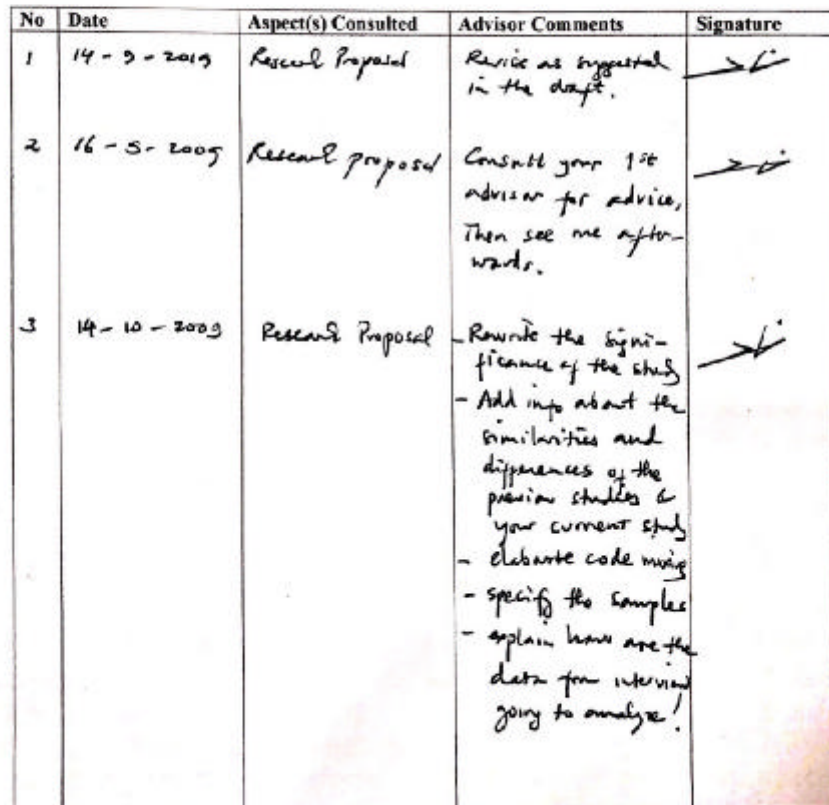 No Date Aspect(s) Consulted Advisor Comments Signature
1 14 - 9 - 2019 Research Proposal Revise as suggested
in the draft.
2 16 - 5 - 2009 Research proposal Consult your 1st
advisor for advice,
Then see me after-
wards.
3 14 - 10 - 2009 Research Proposal - Rewrite the signi-
ficance of the study
- Add info about the
similarities and
differences of the
previous studies &
your current study
- elaborate code mixing
- specify the samples
- explain how are the
data from interview
going to analyze!